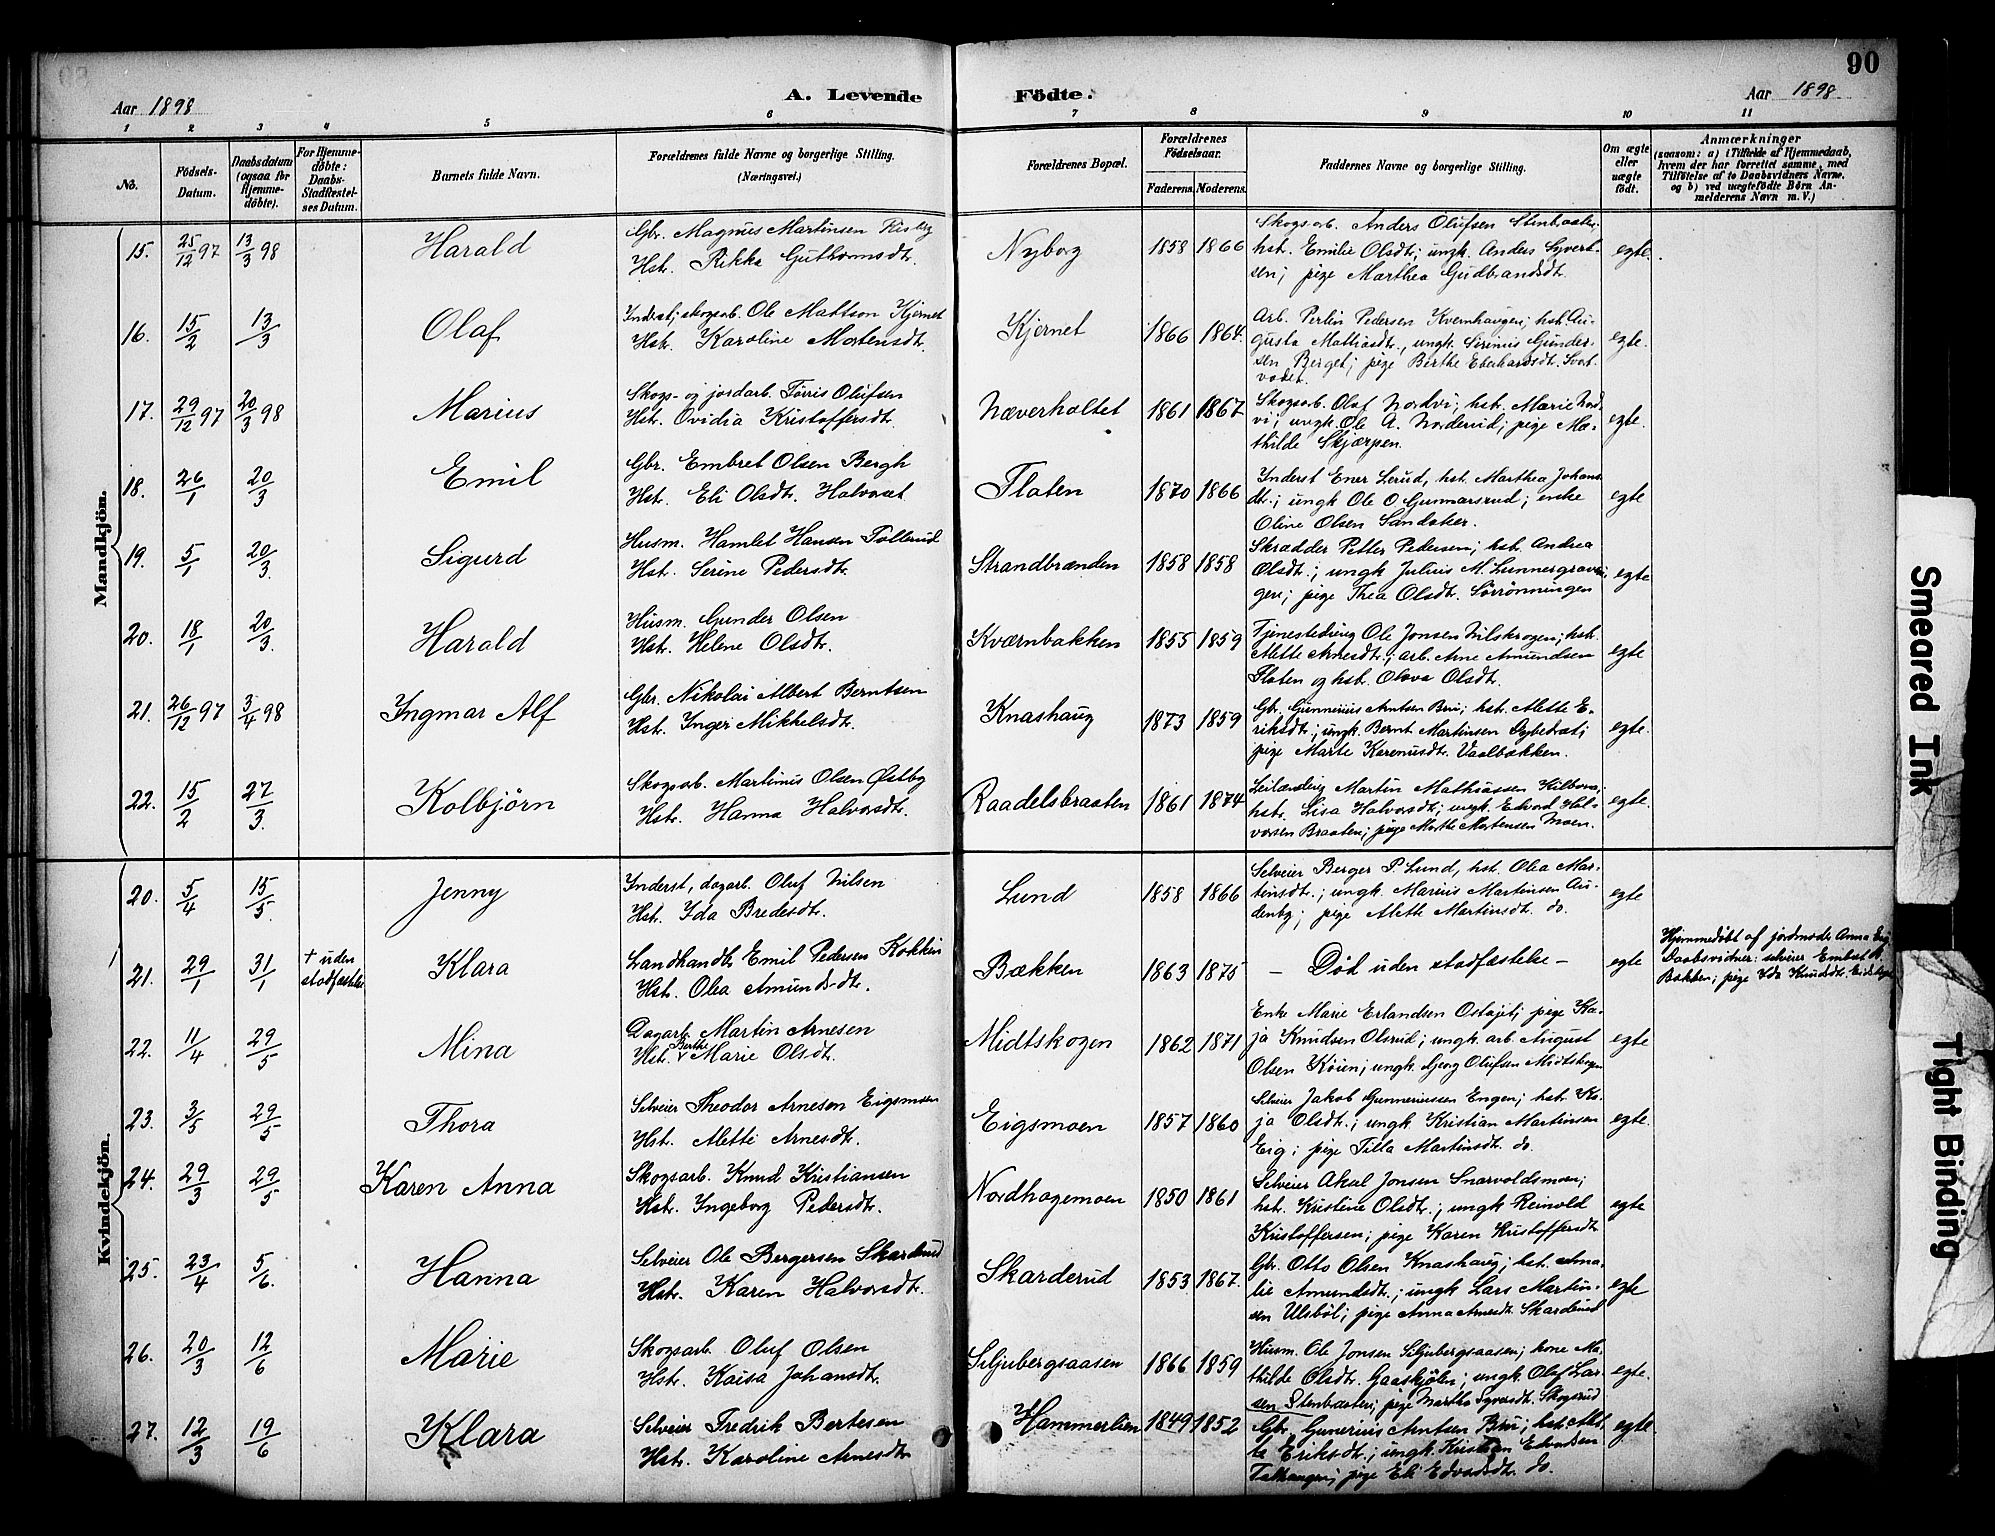 90
Aar 1898
A. Levende
Födte.
Aar 1898
1 2 3 4 5 6 7 8 9 10 11
No.
Födsels-
Datum.
Daabsdatum
(ogsaa for
Hjemme-
döbte).
For Hjemme-
döbte:
Daabs-
Stadfæstel-
ses Datum.
Barnets fulde Navn.
Forældrenes fulde Navne og borgerlige Stilling.
(Næringsvei.)
Forældrenes Bopæl.
Forældrenes
Födselsaar.
Faderens. Moderens.
Faddernes Navne og borgerlige Stilling.
Om ægte
eller
uægte
födt.
Anmærkninger
(saasom: a) i Tilfælde af Hjemmedaab,
hvem der har forrettet samme, med
Tilföielse af to Daabsvidners Navne,
og b) ved uægtefödte Börn An-
melderens Navn m. V.)
Mandkjön.
15. 25/12 97 13/3 98 Harald
Gbr. Magnus Martinsen Risby
Hst. Rikka Guthormsdt.
Nyborg 1858 1866
Skogsarb. Anders Olufsen Stenbraaten;
hst. Emilie Olsdt; ungk. Anders Syvert-
sen; pige Marthea Gudbrandsdt.
egte.
16. 15/2 13/3 Olaf
Inderst; skogsarb. Ole Mattson Kjernet
Hst. Karoline Mortensdt.
Kjernet 1866 1864.
Arb. Perlin Pedersen Kvernhaugen; hst. Au-
gusta Mathiasdt., ungk. Serinus Gunder-
sen Berget; pige Berthe Eberhardsdt. Svart-
vadet.
egte.
17. 29/12 97 20/3 98 Marius
Skogs- og jordarb. Törris Olufsen
Hst. Ovidia Kristoffersdt.
Næverholtet 1861 1867.
Skogsarb. Olaf Nordvi; hst. Marie Nord-
vi; ungk. Ole A. Norderud; pige Ma-
thilde Skjærpen.
egte.
18. 26/1 20/3 Emil
Gbr. Embret Olsen Bergh
Hst. Eli Olsdt. Halvorset
Flaten 1870 1866
Inderst Ener Lerud, hst. Marthea Johans-
dt.; ungk Ole O Gunnarsrud; enke
Oline Olsen Sandaker.
egte
19. 5/1 20/3. Sigurd
Husm. Hamlet Hansen Tollerud
Hst. Serine Pedersdt.
Strandbrænden 1858 1858
Skrædder Petter Pedersen; hst. Andrea
Olsdt.; ungk Julius M. Lunnergraven-
gen; pige Thea Olsdt. Sörrönningen
egte
20. 18/1 20/3. Harald
Husm. Gunder Olsen
Hst. Helene Olsdt.
Kværnbakken 1855 1859
Tjenestedreng Ole Jonsen Nilskrogen; hst.
Alette Arnesdt.; arb. Arne Amundsen
Flaten og hst. Olava Olsdt.
egte
21. 26/12 97 3/4 98 Ingmar Alf
Gbr. Nikolai Albert Berntsen
Hst. Inger Mikkelsdt.
Knashaug 1873 1859
Gbr. Gunnerius Arntsen Bru; hst. Alette E-
riksdt.; ungk. Bernt Martinsen
pige Marte Karenusdt. Vaalbakken.
egte.
22. 15/2 27/3. Kolbjörn
Skogsarb. Martinus Olsen Østby
Hst. Hanna Halvorsdt.
Raadelsbraaten 1861 1874
Leilænding Martin Mathiassen Kilbonn,
hst. Lisa Halvorsdt; ungk. Edvard Hal-
vorsen Braaten; pige Marthe Mortensen Moen.
egte.
Kvindekjön.
20. 5/4 15/5. Jenny
Inderst, dagarb. Oluf Nilsen
Hst. Ida Bredesdt.
Lund 1858 1866
Selveier Berger P. Lund, hst. Olea Mar-
tinsdt.; ungk. Marius Martinsen Au-
denby; pige Alette Martinsdt. do.
egte
21. 29/1 31/1 + uden
stadfæstelse Klara
Landhandler Emil Pedersen Kokkin
Hst. Olea Amundsdt.
Bækken 1863 1875
- Död uden stadfæstelse -
egte
Hjemmedöbt af jordmoder Anna Eig
Daabsvidner: selveier Embret
Bakken; pige Ida Knudsdt.
22. 11/4 29/5 Mina
Dagarb. Martin Arnesen
Hst. Berthe Marie Olsdt.
Midtskogen 1862 1871
Enke Marie Erlandsen Ostojet; pige Ka-
ja Knudsen Olsrud; ungk. arb. August
Olsen Köien; ungk. Georg Olufsen Midtskogen
egte
23. 3/5 29/5 Thora
Selveier Theodor Arnesen Eigsmoen
Hst. Alette Arnesdt.
Eigsmoen 1857 1860
Selveier Jakob Gunneriussen Engen; hst. Ka-
ja Olsdt.; ungk Kristian Martinsen
Eig; pige Tilla Martinsdt. do.
egte.
24. 29/3 29/5 Karen Anna
Skogsarb. Knud Kristiansen
Hst. Ingeborg Pedersdt.
Nordhagemoen 1850 1861
Selveier Aksel Jonsen Snarvoldsmoen;
hst. Kristine Olsdt.; ungk Reinold
Kristoffersen; pige Karen Kristoffersdt.
egte
25. 23/4 5/6. Hanna
Selveier Ole Bergersen Skarderud
Hst. Karen Halvorsdt.
Skarderud 1853 1867.
Gbr. Otto Olsen Knashaug; hst. Ama-
lie Amundsdt.; ungk Lars Martin-
sen Ulsböl; pige Anna Arnesdt. Skarderud
egte
26. 20/3 12/6 Marie
Skogsarb. Oluf Olsen
Hst. Kaisa Johansdt.
Siljubergsaasen 1866 1859
Husm. Ole Jonsen Siljubergsaasen; kone Ma-
thilde Olsdt. Gaaskjölen; ungk. Olaf Lar-
sen Stenbaaten; pige Martha Syversdt. Skogsrud
egte.
27. 12/3 19/6 Klara
Selveier Fredrik Bertesen
Hst. Karoline Arnesdt.
Hammerlien 1849 1852
Gbr. Gunerius Arntsen Bru; hst. Alet-
te Eriksdt.; ungk. Kristian Edvardsen
pige Eli Edvardsdt. do.
egte.
Smeared Ink
Tight Binding